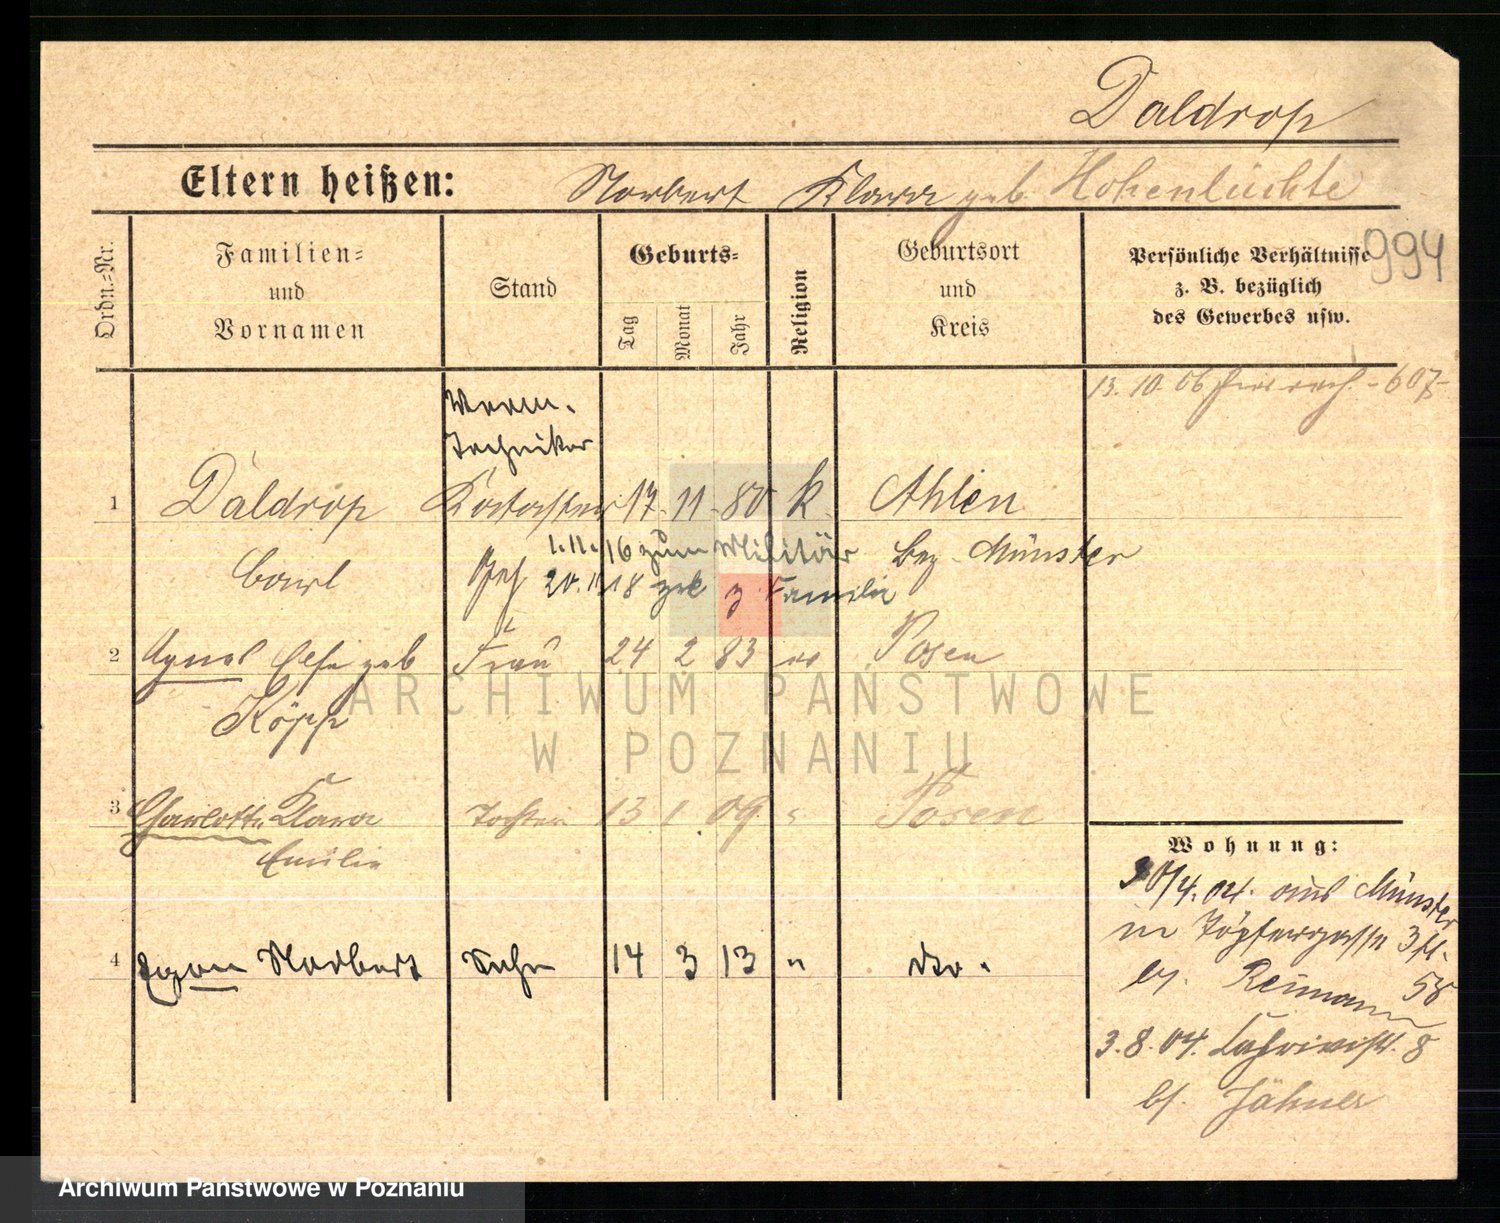 Daldrop
Eltern heißen: Norbert Klara geb. Hohenlüchte
994
Ordn.=Nr.
Familien=
und
Vornamen
Stand
Geburts=
Tag
Monat
Jahr
Religion
Geburtsort
und
Kreis
Persönliche Verhältnisse
z. B. bezüglich
des Gewerbes usw.
13. 10. 06 -607-
Techniker
1 Daldrop 17. 11. 80 k Ahlen
Carl
1.11.16 zum Militär
Bez. Münster
20.11.18 zrk z Familie
2 Agnes geb Frau 24 2 83 Posen
Köpp
3 Charlotte Klara Tochter 13 1 09 " Posen
Emilie
4 Egon Norbert Sohn 14 3 13 " dto.
Wohnung:
30/4.04. aus Münster
in Töpfergasse 3
Reimann 58
3.8.04. 8
bf. Jähner
ARCHIWUM PAŃSTWOWE
W POZNANIU
Archiwum Państwowe w Poznaniu